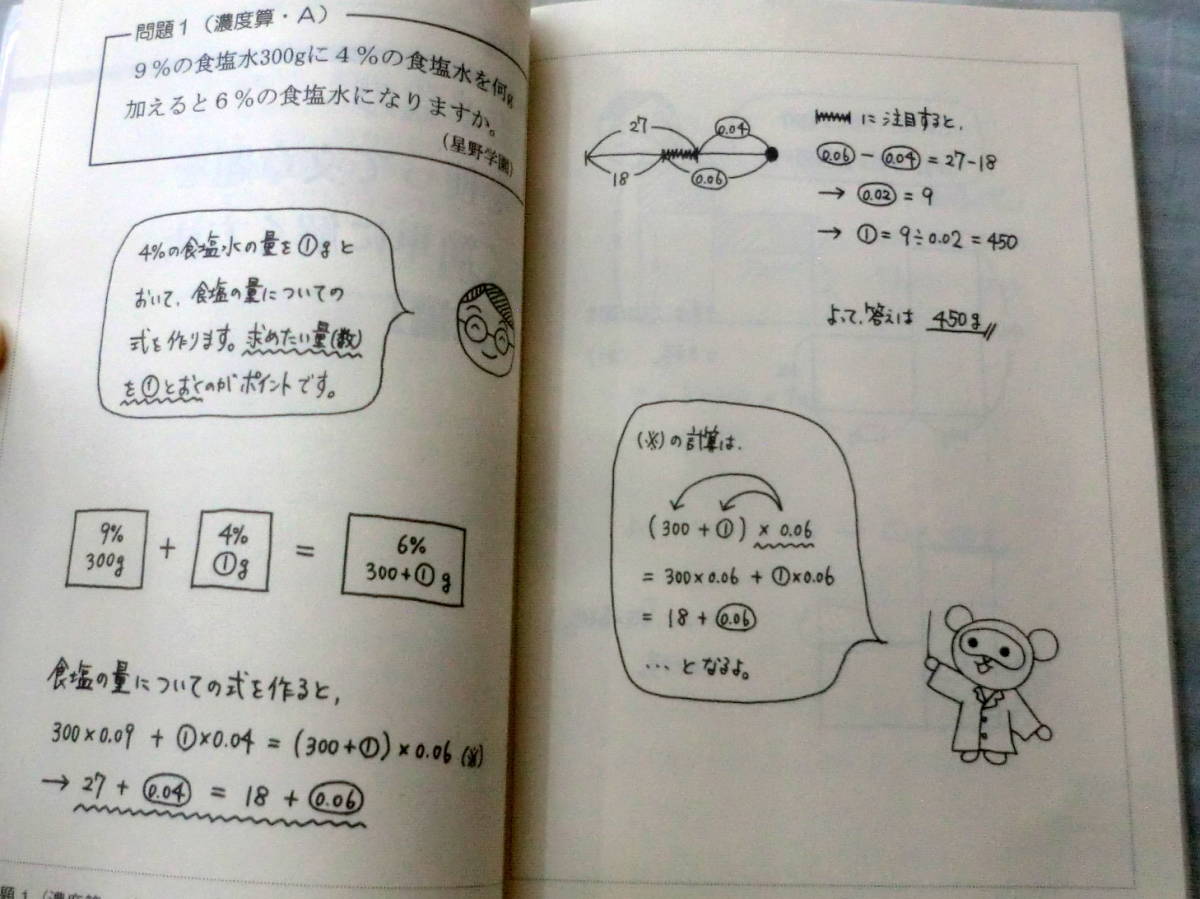 問題1（濃度算・A）
9%の食塩水300gに4%の食塩水を何g
加えると6%の食塩水になりますか。
（星野学園）
4%の食塩水の量を①gと
おいて、食塩の量についての
式を作ります。求めたい量(数)
を①とおくのがポイントです。
9%
300g
+
4%
①g
=
6%
300+①g
食塩の量についての式を作ると、
300×0.09 + ①×0.04 = (300+①)×0.06 (※)
→ 27 + (0.04) = 18 + (0.06)
題1（濃度算
27
(0.04)
18
(0.06)
に注目すると、
(0.06) - (0.04) = 27-18
→ (0.02) = 9
→ ① = 9÷0.02 = 450
よって、答えは 450g
(※)の計算は、
(300 + ①) × 0.06
= 300×0.06 + ①×0.06
= 18 + (0.06)
…となるよ。